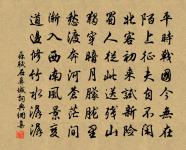 平時戰國今無在
陌上征夫自不閑
北客初來試新險
蜀人從此送殘山
獨穿暗月朦朧里
愁渡奔河蒼茫間
漸入西南風景變
道邊修竹水潺潺
蘇軾石鼻城詞典網